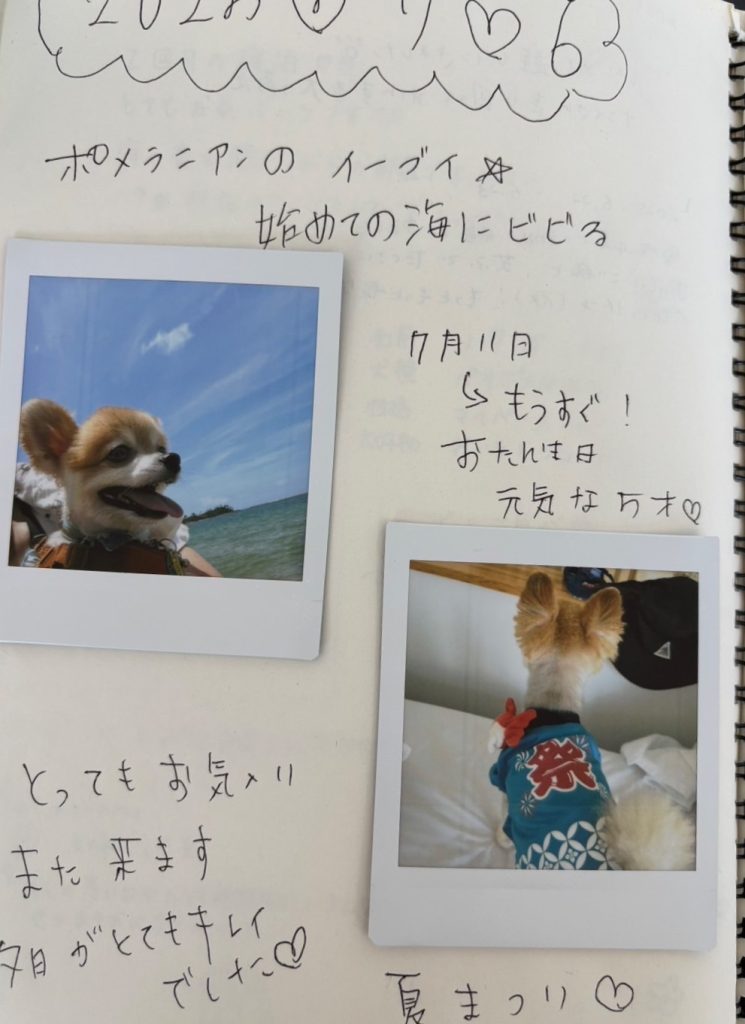 ポメラニアンの イーブイ☆
始めての海にビビる
7月11日
↳ もうすぐ!
おたん生日
元気な5才♡
祭
とってもお気入り
また来ます
夕日がとてもキレイ
でした♡
夏まつり♡